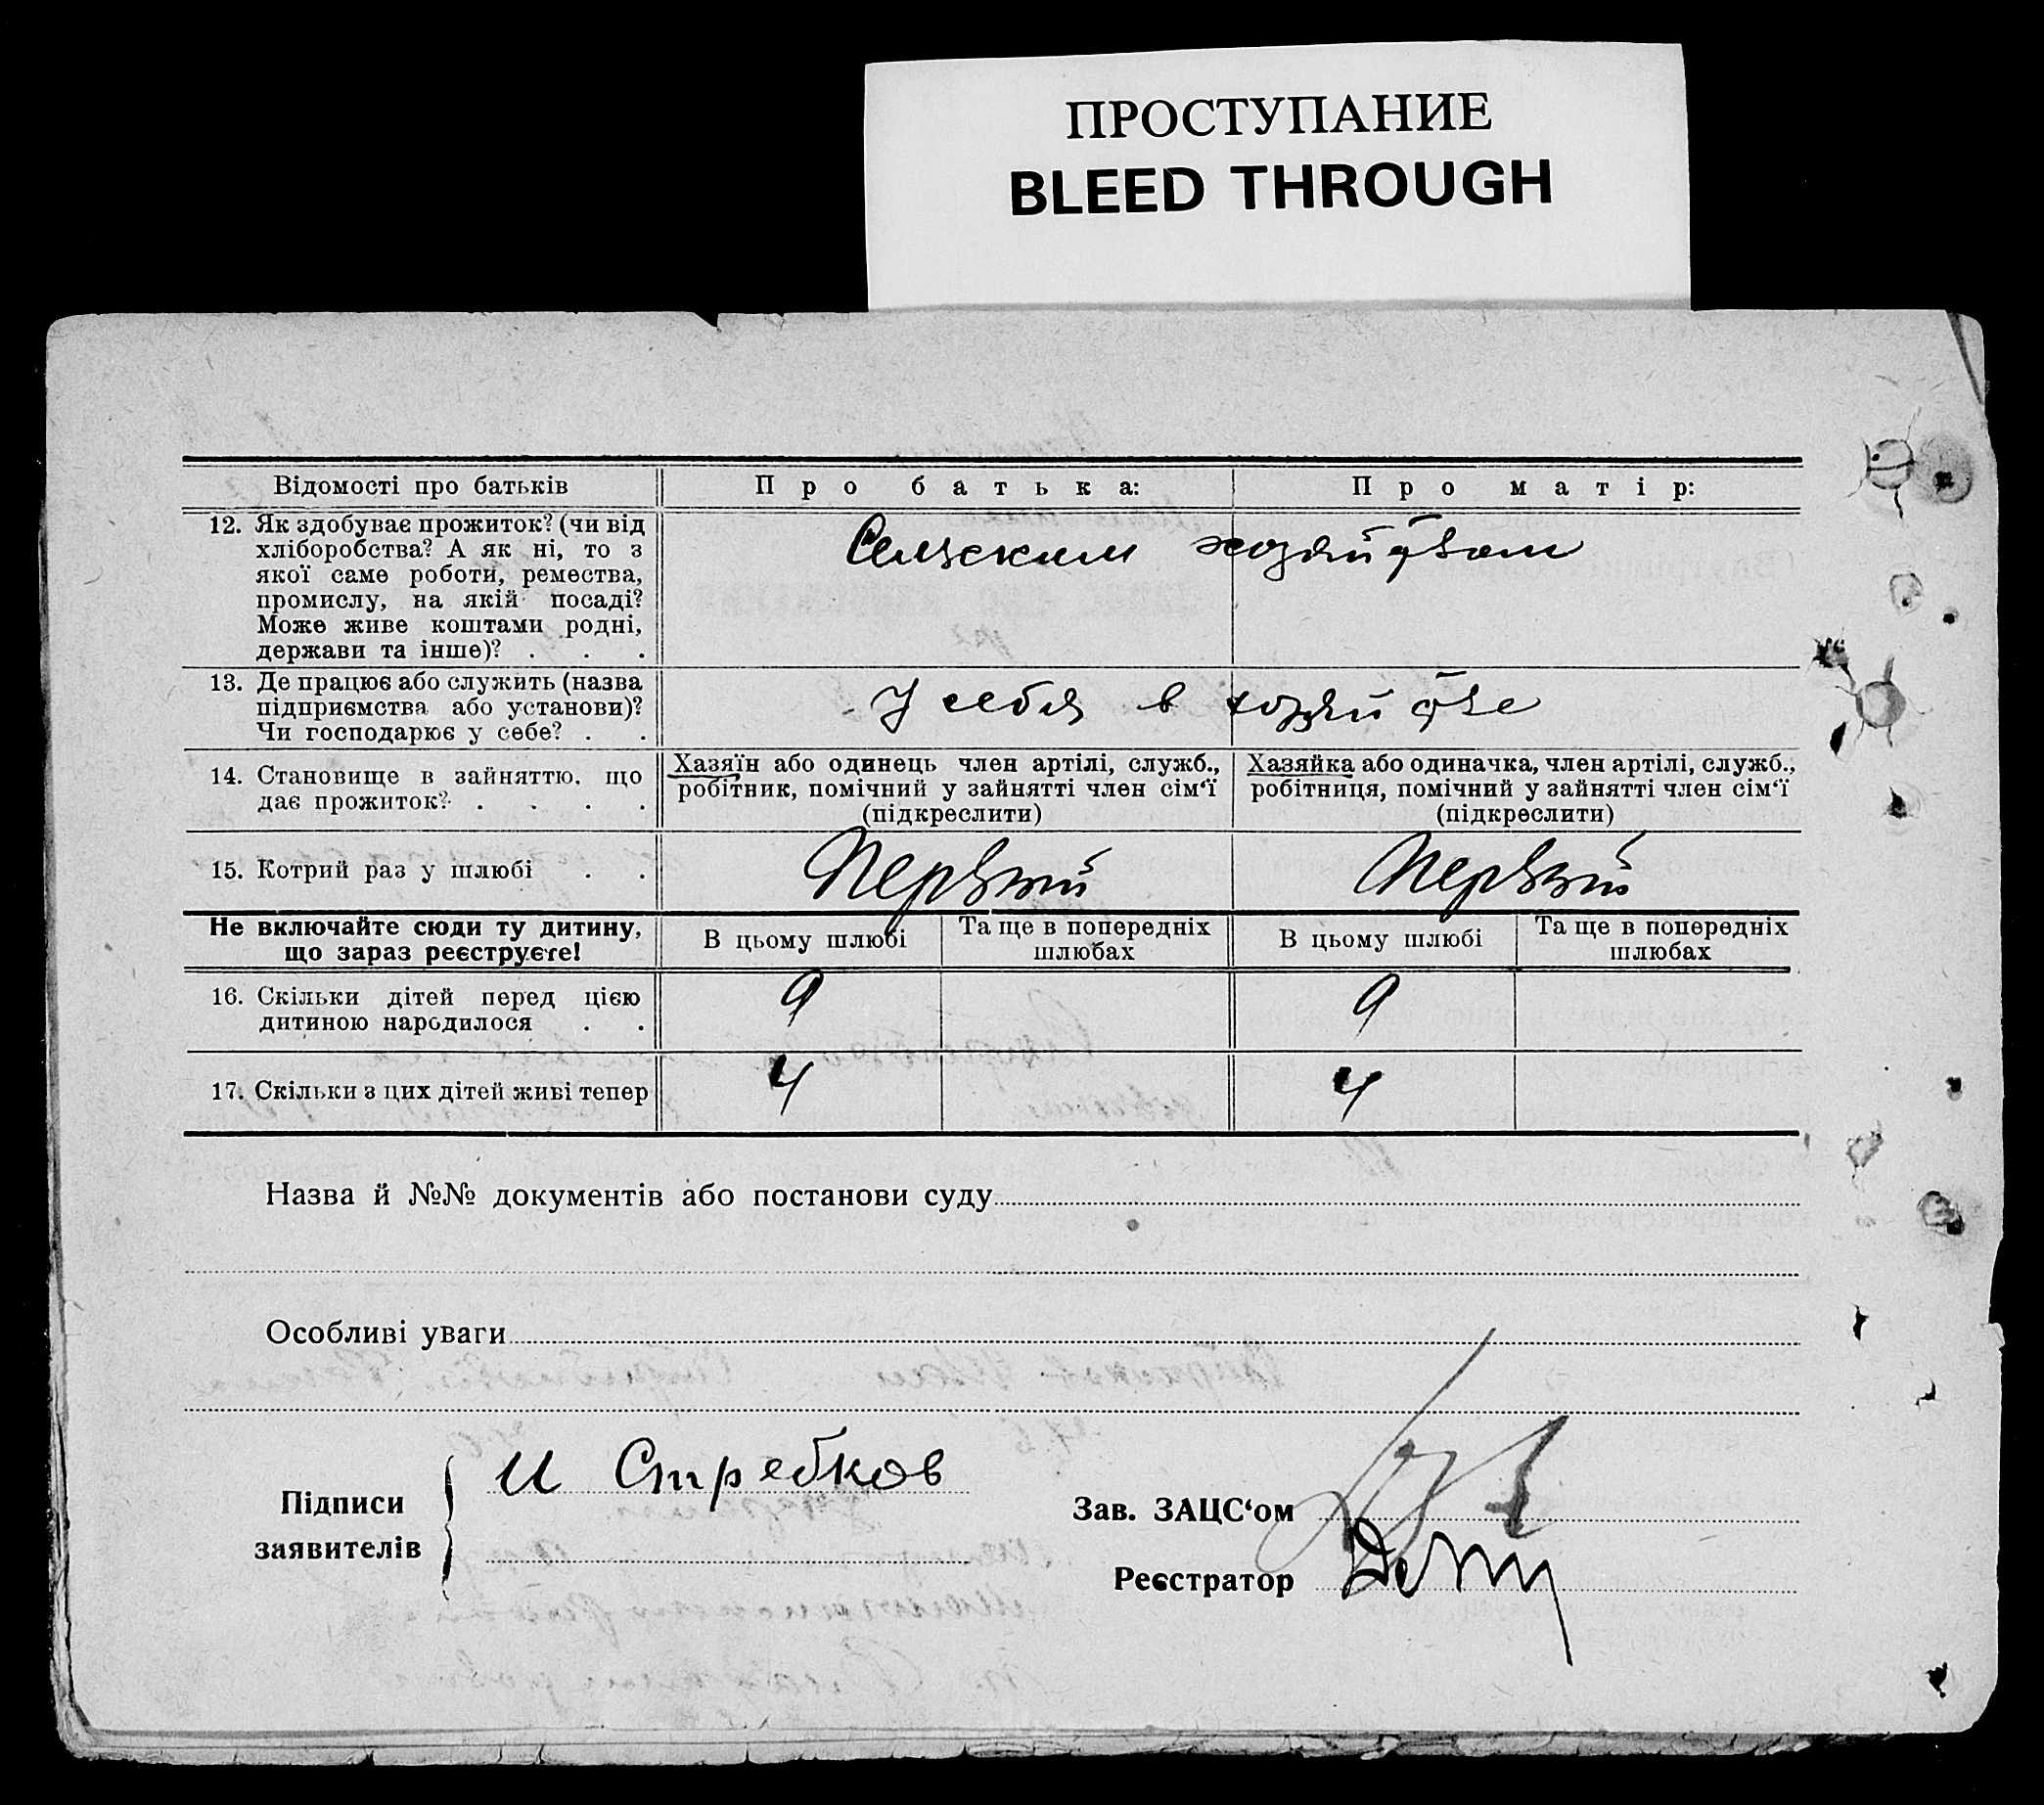 ПРОСТУПАНИЕ
BLEED THROUGH
Відомості про батьків Про батька: Про матір:
12. Як здобуває прожиток? (чи від
хліборобства? А як ні, то з
якої саме роботи, ремества,
промислу, на якій посаді?
Може живе коштами родні,
держави та інше)? . . .
Сельским хозяйством
13. Де працює або служить (назва
підприємства або установи)?
Чи господарює у себе? . .
У себя в хозяйстве
14. Становище в зайняттю, що
дає прожиток? . . . .
Хазяїн або одинець член артілі, служб.,
робітник, помічний у зайнятті член сім‘ї
(підкреслити)
Хазяйка або одиначка, член артілі, служб.,
робітниця, помічний у зайнятті член сім‘ї
(підкреслити)
15. Котрий раз у шлюбі . . Первый Первый
Не включайте сюди ту дитину,
що зараз реєструєте!
В цьому шлюбі
Та ще в попередніх
шлюбах
В цьому шлюбі
Та ще в попередніх
шлюбах
16. Скільки дітей перед цією
дитиною народилося . .
9 9
17. Скільки з цих дітей живі тепер 4 4
Назва й №№ документів або постанови суду
Особливі уваги
Підписи
заявителів
И Стребков
Зав. ЗАЦС‘ом
Реєстратор